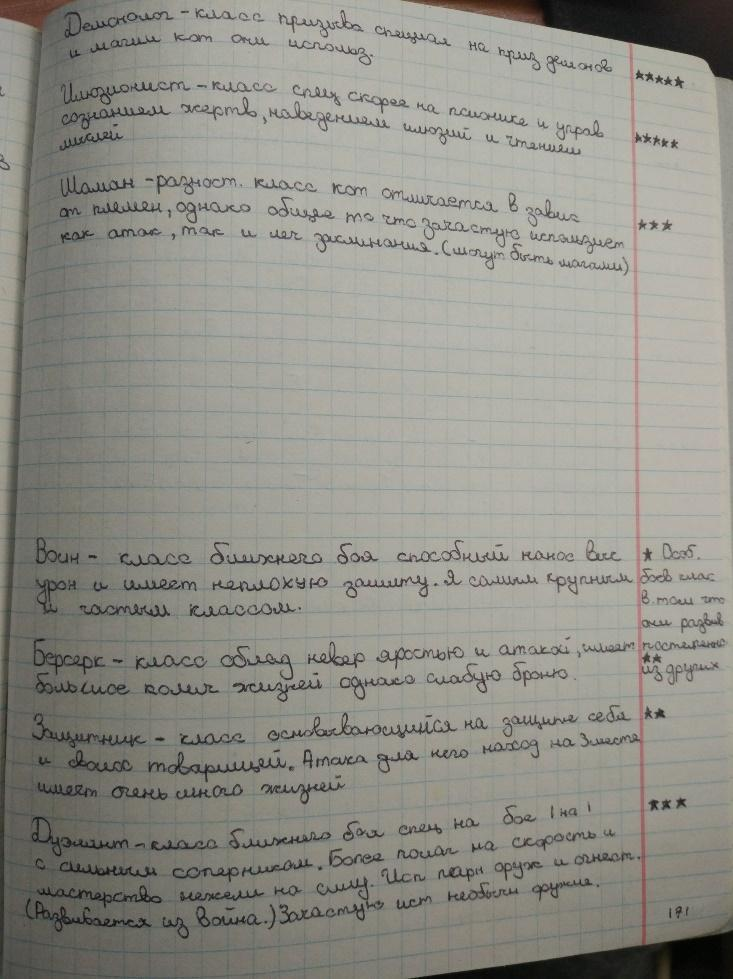 Демонолог - класс призыва специал на приз демонов
и магии кот они использ.
★★★★★
Иллюзионист - класс спец скорее на псионике и управ
сознанием жертв, наведением илюзий и чтением
мыслей
★★★★★
Шаман - разност. класс кот отличается в завис
от племен, однако общее то что зачастую использует
как атак, так и леч заклинания. (могут быть магами)
★★★
Воин - класс ближнего боя способный нанос выс
урон и имеет неплохую защиту. Я самым крупным
и частым классом.
★ Особ.
боев клас
в том что
они развив
постепенно
из других
Берсерк - класс облад невер яростью и атакой, имеет
большое колич жизней однако слабую броню.
★★
Защитник - класс основывающийся на защите себя
и своих товарищей. Атака для него наход на 3 месте
имеет очень много жизней
★★
Дуэлянт - класс ближнего боя спец на бое 1 на 1
с сильным соперником. Более полаг на скорость и
мастерство нежели на силу. Исп парн оруж и огнест.
(Развивается из Война.) Зачастую ист необычн оружие.
★★★
171